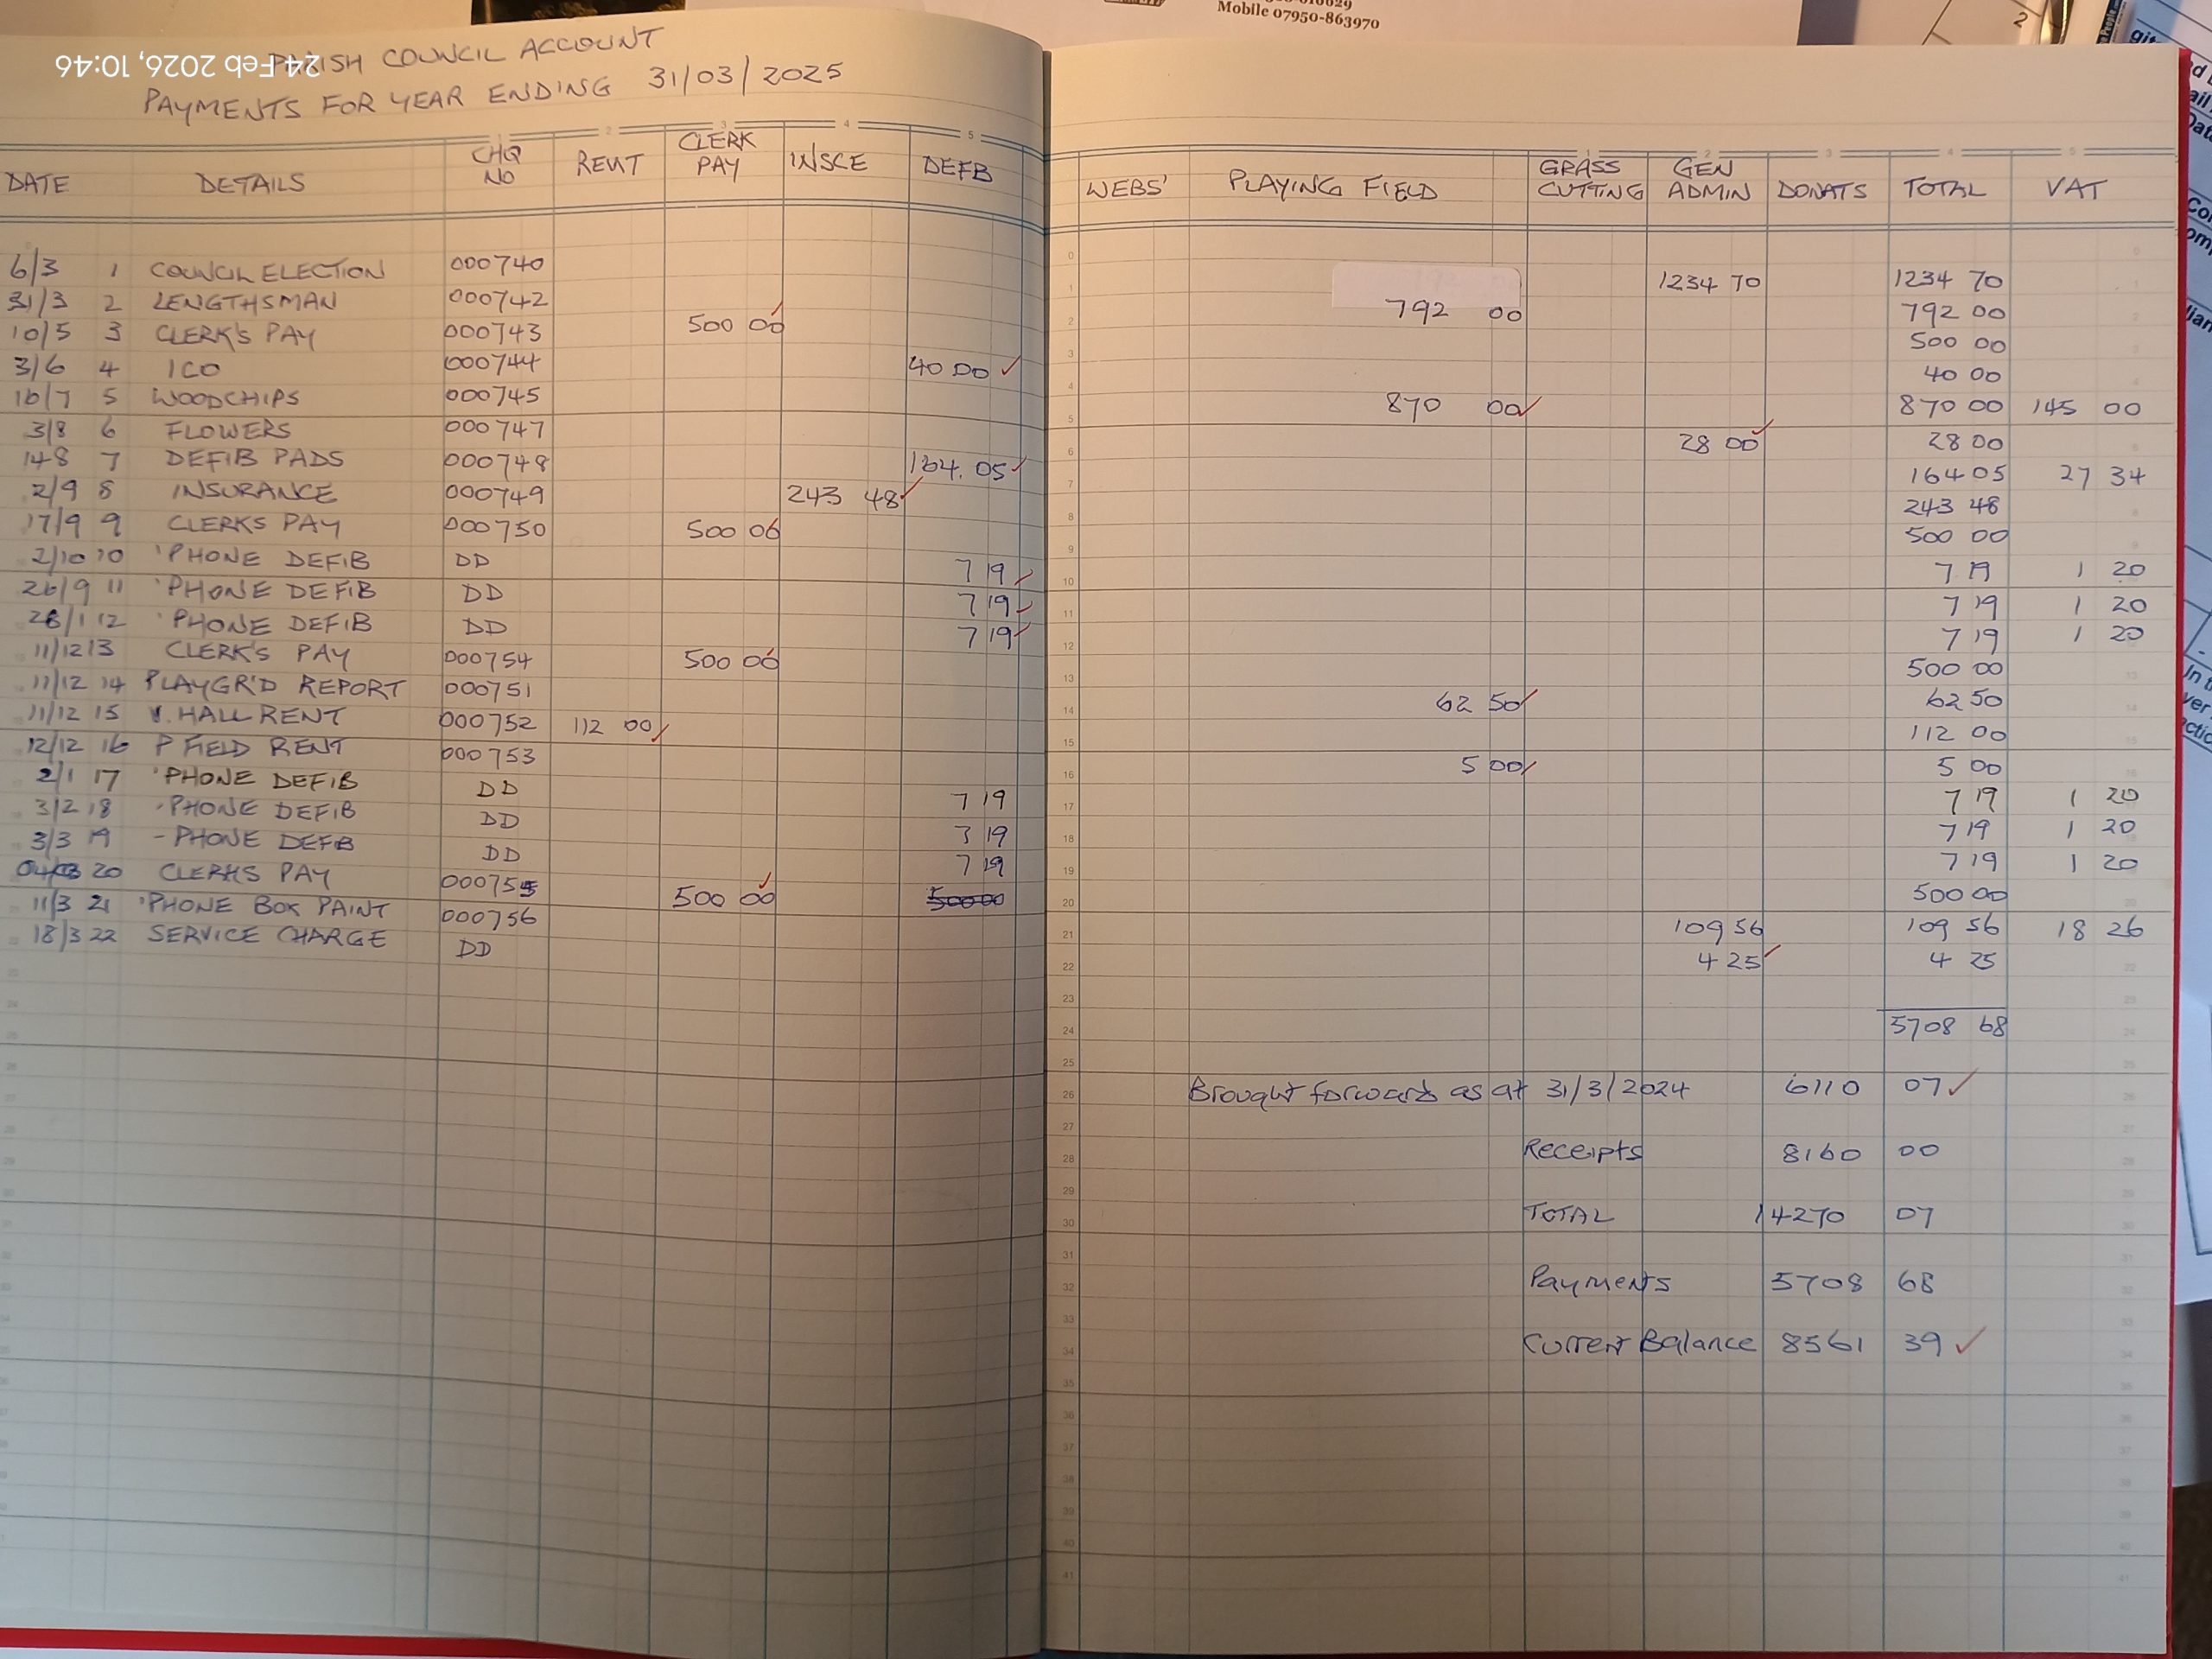 Mobile 07950-863970
24 Feb 2026, 10:46
PARISH COUNCIL ACCOUNT
PAYMENTS FOR YEAR ENDING 31/03/2025
DATE DETAILS CHQ NO RENT CLERK PAY INSCE DEFB WEBS' PLAYING FIELD GRASS CUTTING GEN ADMIN DONATS TOTAL VAT
6/3 1 COUNCIL ELECTION 000740 1234 70 1234 70
31/3 2 LENGTHSMAN 000742 792 00 792 00
10/5 3 CLERK'S PAY 000743 500 00 500 00
3/6 4 ICO 000744 40 00 40 00
16/7 5 WOODCHIPS 000745 870 00 870 00 145 00
3/8 6 FLOWERS 000747 28 00 28 00
148 7 DEFIB PADS 000748 164.05 164 05 27 34
2/9 8 INSURANCE 000749 243 48 243 48
17/9 9 CLERKS PAY 000750 500 00 500 00
2/10 10 'PHONE DEFIB DD 7 19 7 19 1 20
26/9 11 'PHONE DEFIB DD 7 19 7 19 1 20
28/1 12 'PHONE DEFIB DD 7 19 7 19 1 20
11/12 13 CLERK'S PAY 000754 500 00 500 00
11/12 14 PLAYGR'D REPORT 000751 62 50 62 50
11/12 15 V. HALL RENT 000752 112 00 112 00
12/12 16 P FIELD RENT 000753 5 00 5 00
2/1 17 'PHONE DEFIB DD 7 19 7 19 1 20
3/2 18 'PHONE DEFIB DD 7 19 7 19 1 20
3/3 19 - PHONE DEFB DD 7 19 7 19 1 20
04/03 20 CLERKS PAY 000755 500 00 50000 500 00
11/3 21 'PHONE BOX PAINT 000756 109 56 109 56 18 26
18/3 22 SERVICE CHARGE DD 4 25 4 25
5708 68
Brought forward as at 31/3/2024 6110 07
Receipts 8160 00
TOTAL 14270 07
Payments 5708 68
Current Balance 8561 39